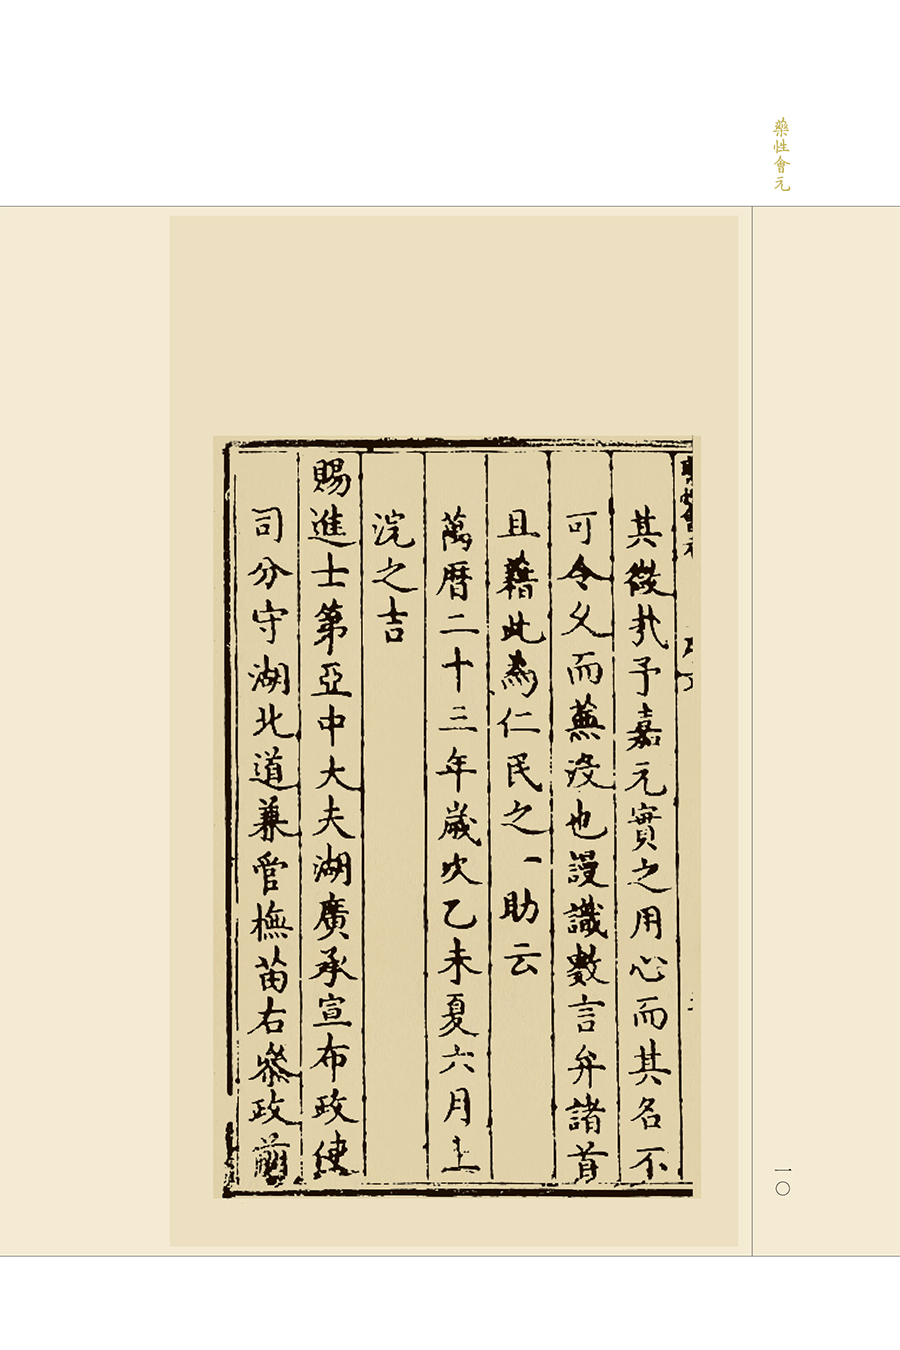 藥性會元
其微扎予嘉元實之用心而其名不
可令义而蕪没也謾識數言弁諸首
且藉此為仁民之一助云
萬曆二十三年歲次乙未夏六月上
浣之吉
賜進士第亞中大夫湖廣承宣布政使
司分守湖北道兼管撫苗右叅政前
一〇